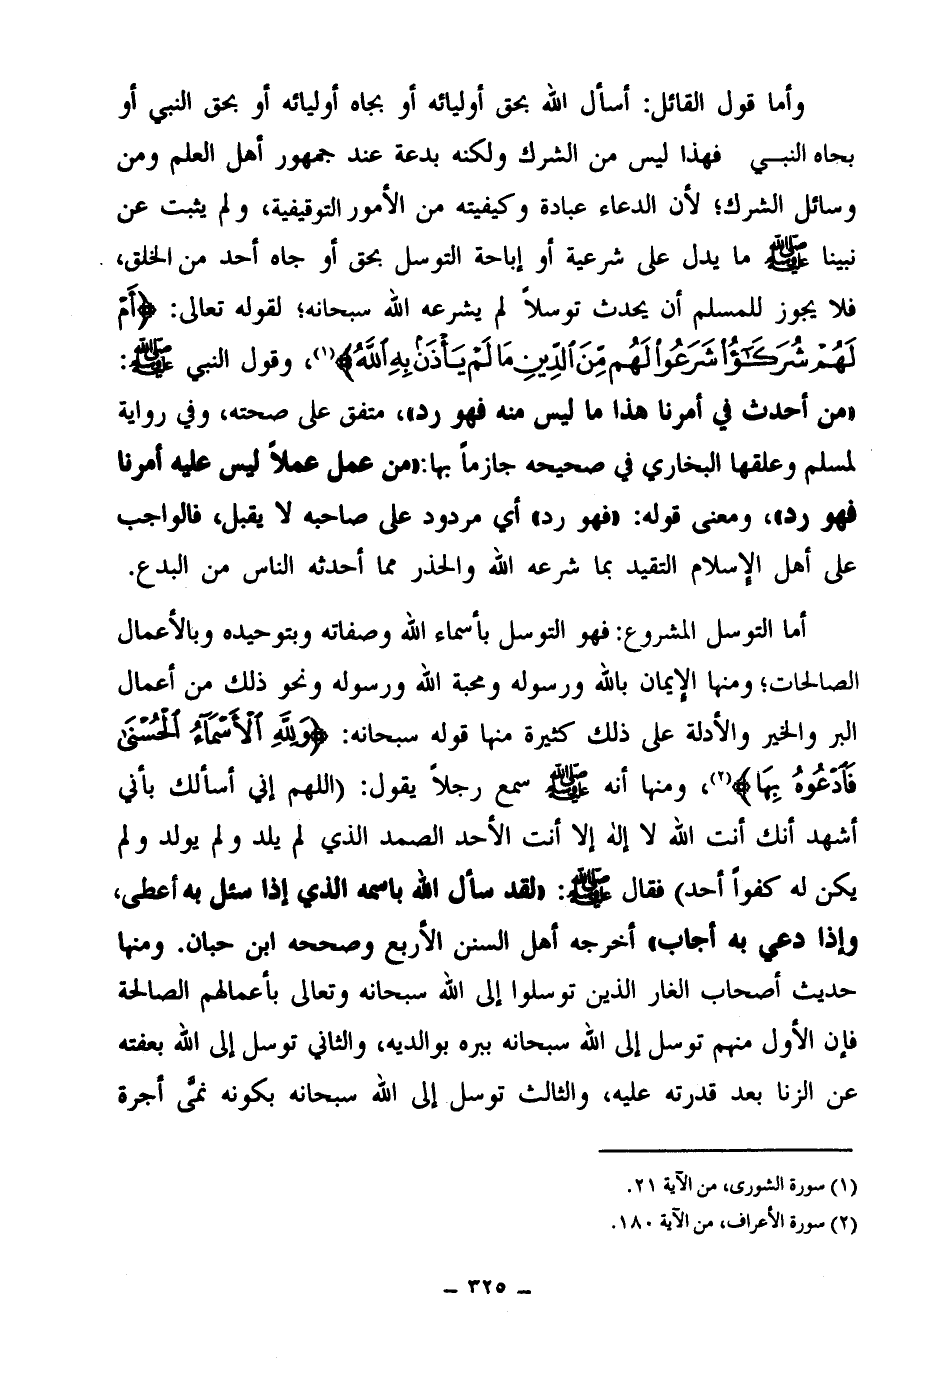 وأما قول القائل: أسأل الله بحق أوليائه أو بجاه أوليائه أو بحق النبي أو
بجاه النبـي فهذا ليس من الشرك ولكنه بدعة عند جمهور أهل العلم ومن
وسائل الشرك؛ لأن الدعاء عبادة وكيفيته من الأمور التوقيفية، ولم يثبت عن
نبينا ﷺ ما يدل على شرعية أو إباحة التوسل بحق أو جاه أحد من الخلق،
فلا يجوز للمسلم أن يحدث توسلاً لم يشرعه الله سبحانه؛ لقوله تعالى: ﴿أَمْ
لَهُمْ شُرَكَٰٓؤُا۟ شَرَعُوا۟ لَهُم مِّنَ ٱلدِّينِ مَا لَمْ يَأْذَنۢ بِهِ ٱللَّهُ﴾(١)، وقول النبي ﷺ:
«من أحدث في أمرنا هذا ما ليس منه فهو رد»، متفق على صحته، وفي رواية
لمسلم وعلقها البخاري في صحيحه جازماً بها: «من عمل عملاً ليس عليه أمرنا
فهو رد»، ومعنى قوله: «فهو رد» أي مردود على صاحبه لا يقبل، فالواجب
على أهل الإسلام التقيد بما شرعه الله والحذر مما أحدثه الناس من البدع.
أما التوسل المشروع: فهو التوسل بأسماء الله وصفاته وبتوحيده وبالأعمال
الصالحات؛ ومنها الإيمان بالله ورسوله ومحبة الله ورسوله ونحو ذلك من أعمال
البر والخير والأدلة على ذلك كثيرة منها قوله سبحانه: ﴿وَلِلَّهِ ٱلْأَسْمَآءُ ٱلْحُسْنَىٰ
فَٱدْعُوهُ بِهَا﴾(٢)، ومنها أنه ﷺ سمع رجلاً يقول: (اللهم إني أسألك بأني
أشهد أنك أنت الله لا إله إلا أنت الأحد الصمد الذي لم يلد ولم يولد ولم
يكن له كفواً أحد) فقال ﷺ: «لقد سأل الله باسمه الذي إذا سئل به أعطى،
وإذا دعي به أجاب» أخرجه أهل السنن الأربع وصححه ابن حبان. ومنها
حديث أصحاب الغار الذين توسلوا إلى الله سبحانه وتعالى بأعمالهم الصالحة
فإن الأول منهم توسل إلى الله سبحانه ببره بوالديه، والثاني توسل إلى الله بعفته
عن الزنا بعد قدرته عليه، والثالث توسل إلى الله سبحانه بكونه نمَّى أجرة
(١) سورة الشورى، من الآية ٢١.
(٢) سورة الأعراف، من الآية ١٨٠.
ـ ٣٢٥ ـ